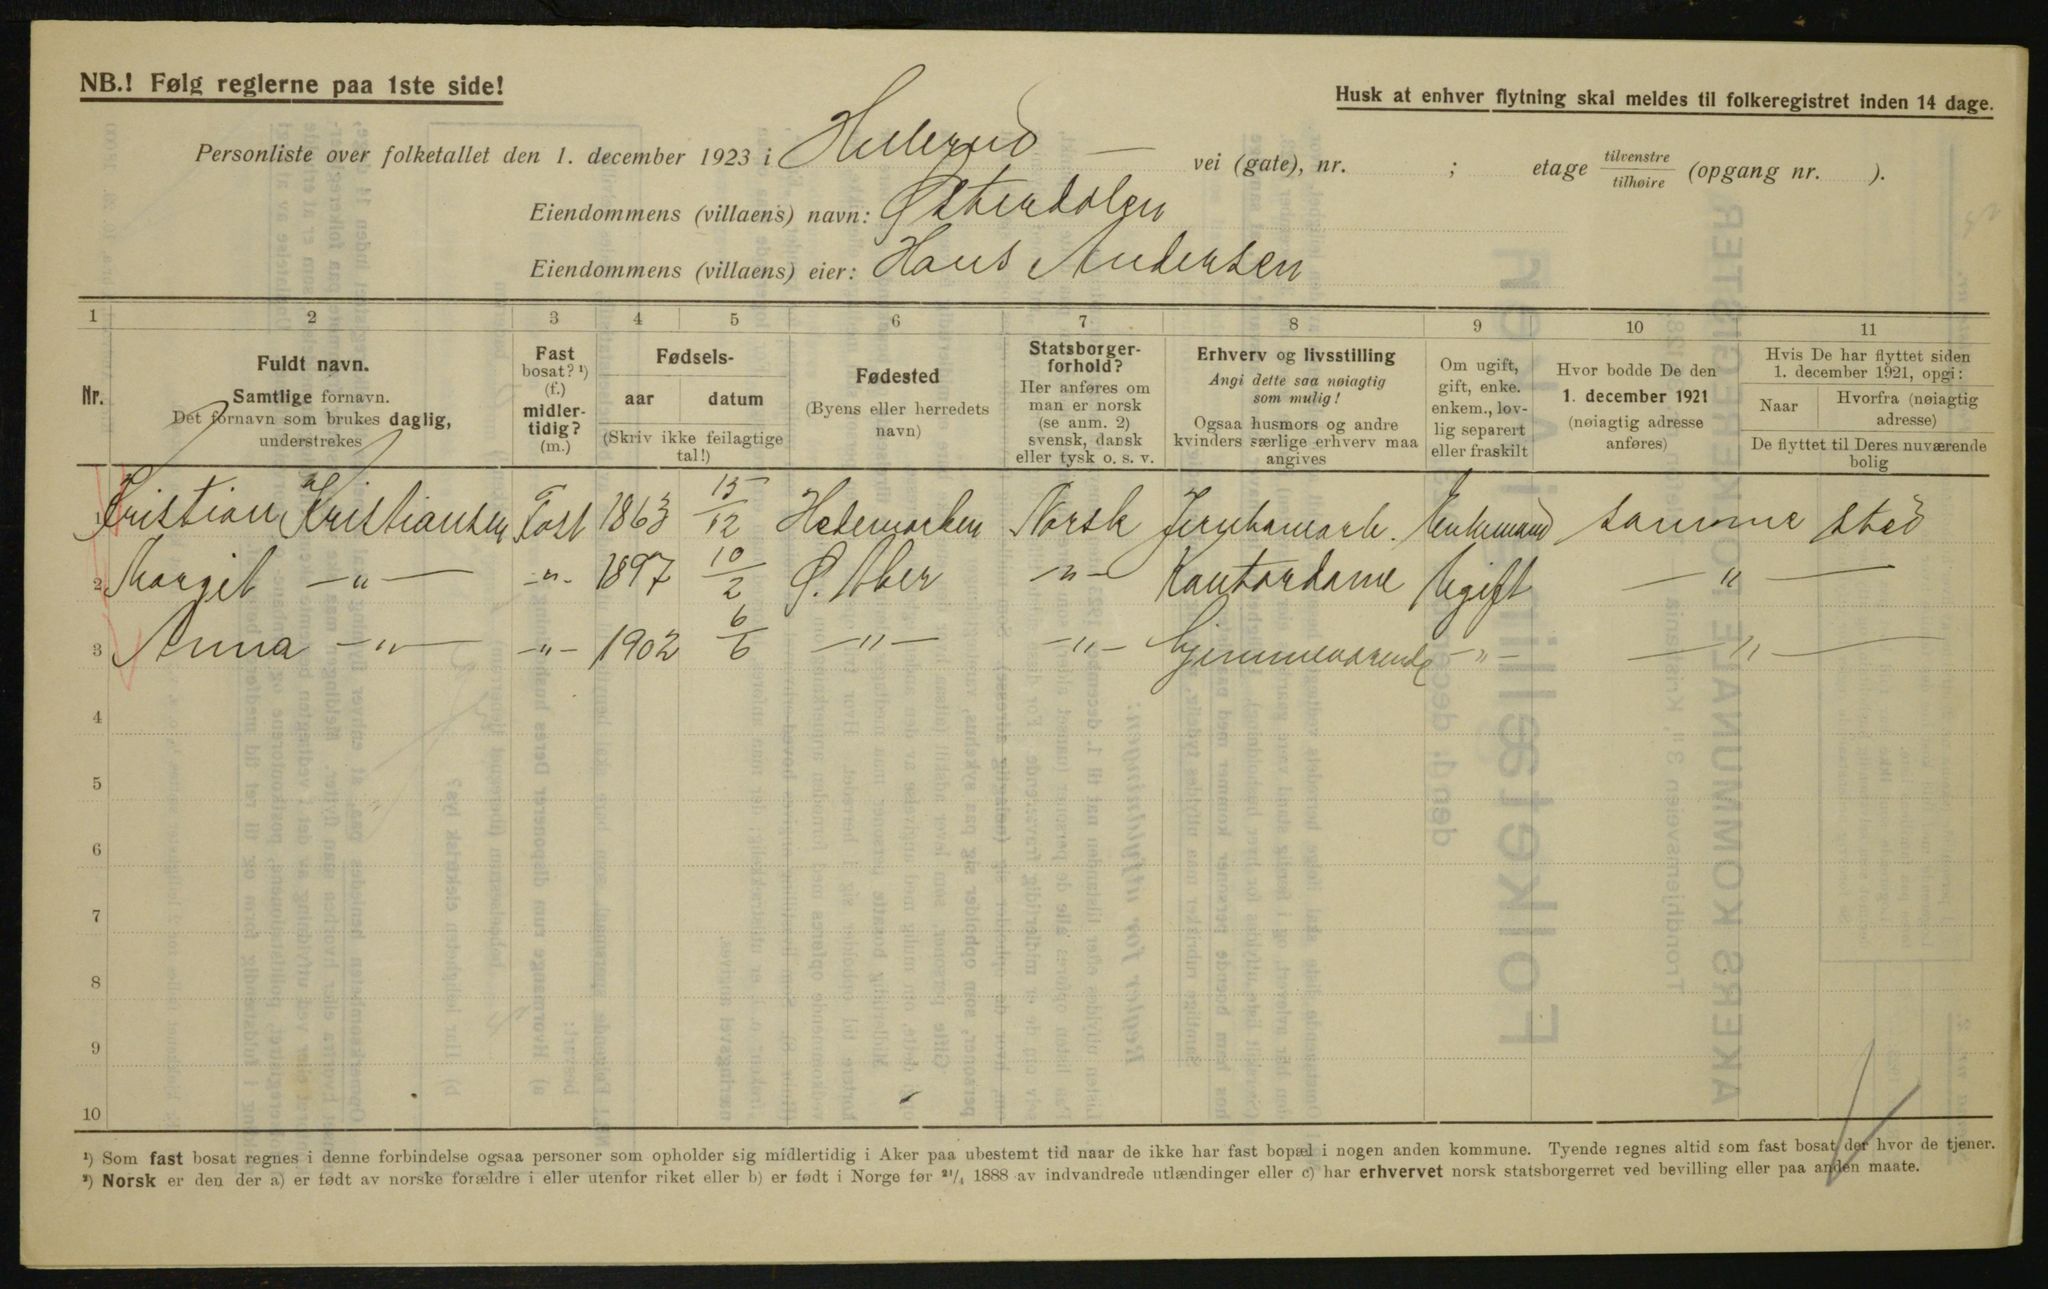 NB.! Følg reglerne paa 1ste side!
Husk at enhver flytning skal meldes til folkeregistret inden 14 dage.
Personliste over folketallet den 1. december 1923 i Hellerud — vei (gate), nr. ; etage tilvenstre/tilhøire (opgang nr. ).
Eiendommens (villaens) navn: Østerdalen
Eiendommens (villaens) eier: Hans Andersen
1 2 3 4 5 6 7 8 9 10 11
Nr.
Fuldt navn.
Samtlige fornavn.
Det fornavn som brukes daglig,
understrekes
Fast
bosat? ¹)
(f.)
midler-
tidig?
(m.)
Fødsels-
aar datum
(Skriv ikke feilagtige
tal!)
Fødested
(Byens eller herredets
navn)
Statsborger-
forhold?
Her anføres om
man er norsk
(se anm. 2)
svensk, dansk
eller tysk o. s. v.
Erhverv og livsstilling
Angi dette saa nøiagtig
som mulig!
Ogsaa husmors og andre
kvinders særlige erhverv maa
angives
Om ugift,
gift, enke.
enkem., lov-
lig separert
eller fraskilt
Hvor bodde De den
1. december 1921
(nøiagtig adresse
anføres)
Hvis De har flyttet siden
1. december 1921, opgi:
Naar
Hvorfra (nøiagtig
adresse)
De flyttet til Deres nuværende
bolig
1 Kristian Kristiansen Fast 1863 15/12 Hedemarken Norsk Jernbanearb. Enkemand samme sted
2 Margit —„— -„- 1897 10/2 Ø. Aker -„- Kontordame Ugift —„—
3 Anna —„— -„- 1902 6/6 —„— -„- Hjemmeværende -„- —„—
4
5
6
7
8
9
10
¹) Som fast bosat regnes i denne forbindelse ogsaa personer som opholder sig midlertidig i Aker paa ubestemt tid naar de ikke har fast bopæl i nogen anden kommune. Tyende regnes altid som fast bosat der hvor de tjener.
²) Norsk er den der a) er født av norske forældre i eller utenfor riket eller b) er født i Norge før ²¹/₄ 1888 av indvandrede utlændinger eller c) har erhvervet norsk statsborgerret ved bevilling eller paa anden maate.